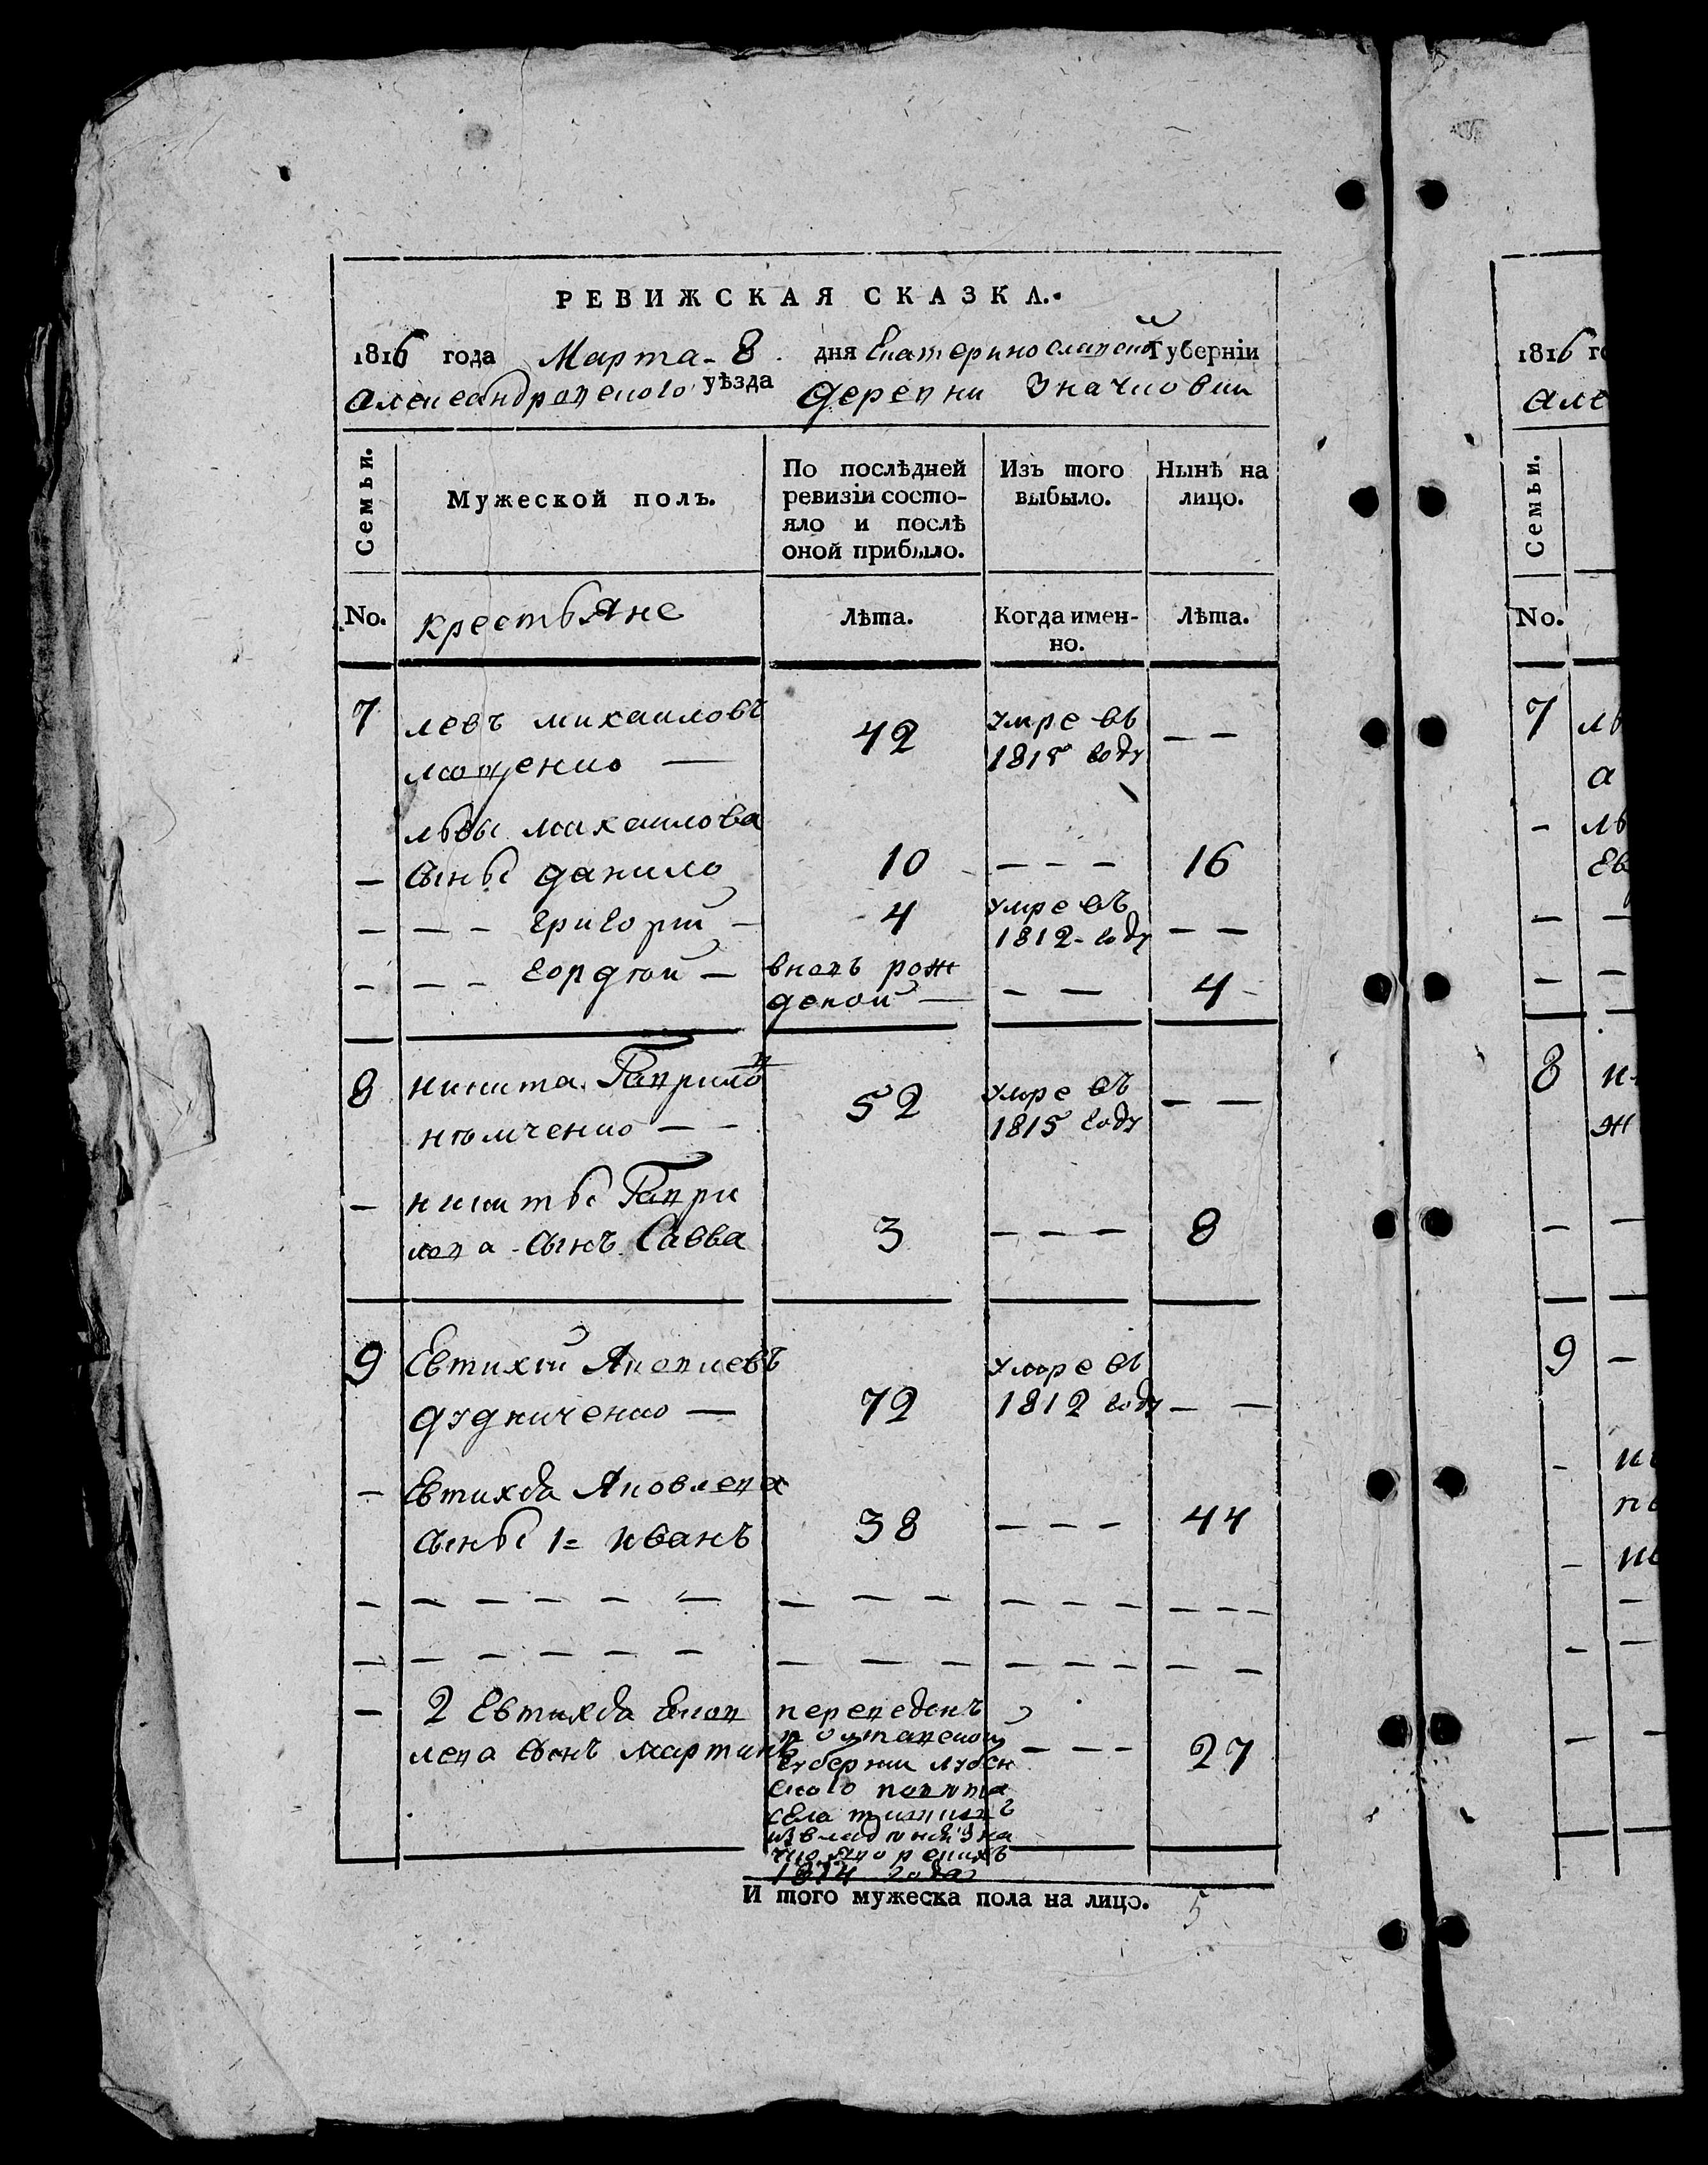 РЕВИЖСКАЯ СКАЗКА.
1816 года Марта 8 дня Екатеринославской Губерніи
Александровского уѣзда деревни Значковки
Семьи.
Мужеской полъ.
По послѣдней ревизіи состо-
яло и послѣ
оной прибыло.
Изъ того
выбыло.
Нынѣ на
лицо.
No.
крестьяне
Лѣта.
Когда имен-
но.
Лѣта.
7 левъ михаиловъ 42 умре въ — —
1815 году
львы михаилова
— сыны данило 10 — — — 16
— — — григорий — 4 умре въ — —
1812 году
— — — гордѣй — вновь рож
деной — — — 4
8 никита Гаврилов 52 умре въ — —
нѣмченко — — 1815 году
— никиты Гаври
лова сынъ Савва 3 — — — 8
9 Евтихий Яковлевъ умре въ
дудниченко — 72 1812 году — —
— Евтихѣя Яковлева
сыны 1= иванъ 38 — — — 44
— — — — — — — — — — — — — — —
— — — — — — — — — — — — — —
— 2 Евтихѣя Яков переведенъ
лева сынъ мартинъ полтавской — — — 27
губернии лубен
ского повѣта
села
1814 года
И того мужеска пола на лицо. 5
1816 го
але
Семьи.
No.
7 ль
а
— ль
ев
— —
— —
8 н
ж
— —
9 —